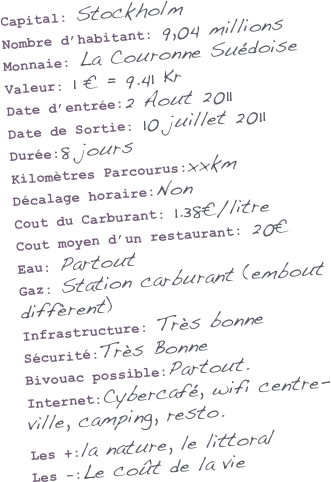 Capital: Stockholm
Nombre d'habitant: 9,04 millions
Monnaie: La Couronne Suédoise
Valeur: 1 € = 9.41 Kr
Date d'entrée:2 Aout 2011
Date de Sortie: 10 juillet 2011
Durée:8 jours
Kilomètres Parcourus:xxkm
Décalage horaire:Non
Cout du Carburant: 1.38€/litre
Cout moyen d'un restaurant: 20€
Eau: Partout
Gaz: Station carburant (embout
diffèrent)
Infrastructure: Très bonne
Sécurité:Très Bonne
Bivouac possible:Partout.
Internet:Cybercafé, wifi centre-
ville, camping, resto.
Les +:la nature, le littoral
Les -:Le coût de la vie